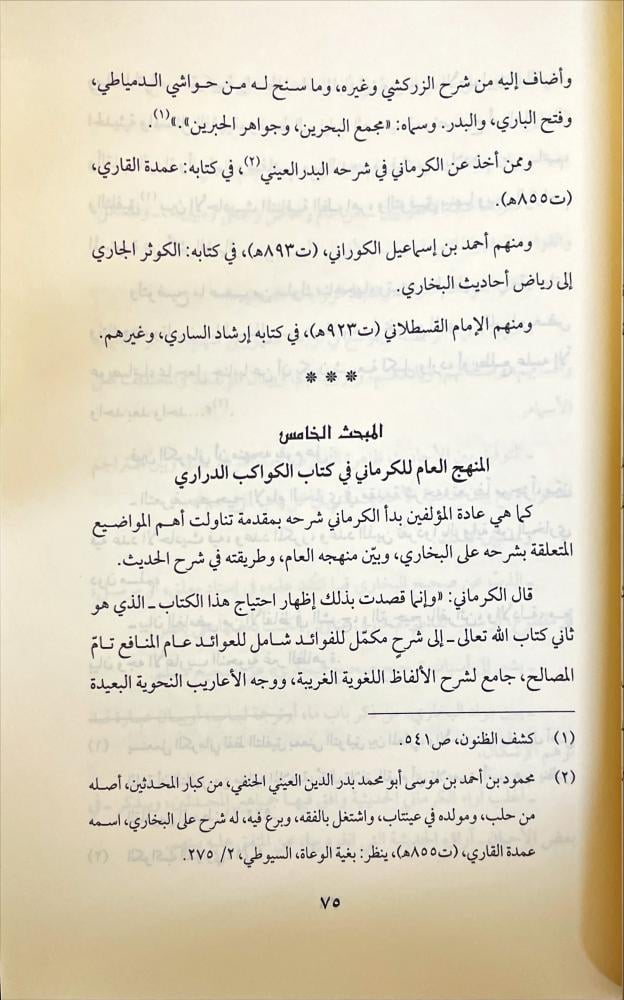 وأضاف إليه من شرح الزركشي وغيره، وما سنح له من حواشي الدمياطي،
وفتح الباري، والبدر. وسماه: «مجمع البحرين، وجواهر الحبرين».»(١).
وممن أخذ عن الكرماني في شرحه البدرالعيني(٢)، في كتابه: عمدة القاري،
(ت٨٥٥هـ).
ومنهم أحمد بن إسماعيل الكوراني، (ت٨٩٣هـ)، في كتابه: الكوثر الجاري
إلى رياض أحاديث البخاري.
ومنهم الإمام القسطلاني (ت٩٢٣هـ)، في كتابه إرشاد الساري، وغيرهم.
* * *
المبحث الخامس
المنهج العام للكرماني في كتاب الكواكب الدراري
كما هي عادة المؤلفين بدأ الكرماني شرحه بمقدمة تناولت أهم المواضيع
المتعلقة بشرحه على البخاري، وبيّن منهجه العام، وطريقته في شرح الحديث.
قال الكرماني: «وإنما قصدت بذلك إظهار احتياج هذا الكتاب ـ الذي هو
ثاني كتاب الله تعالى ـ إلى شرحٍ مكمّل للفوائد شامل للعوائد عام المنافع تامّ
المصالح، جامع لشرح الألفاظ اللغوية الغريبة، ووجه الأعاريب النحوية البعيدة
(١) كشف الظنون، ص٥٤١.
(٢) محمود بن أحمد بن موسى أبو محمد بدر الدين العيني الحنفي، من كبار المحدثين، أصله
من حلب، ومولده في عينتاب، واشتغل بالفقه، وبرع فيه، له شرح على البخاري، اسمه
عمدة القاري، (ت٨٥٥هـ)، ينظر: بغية الوعاة، السيوطي، ٢/ ٢٧٥.
٧٥